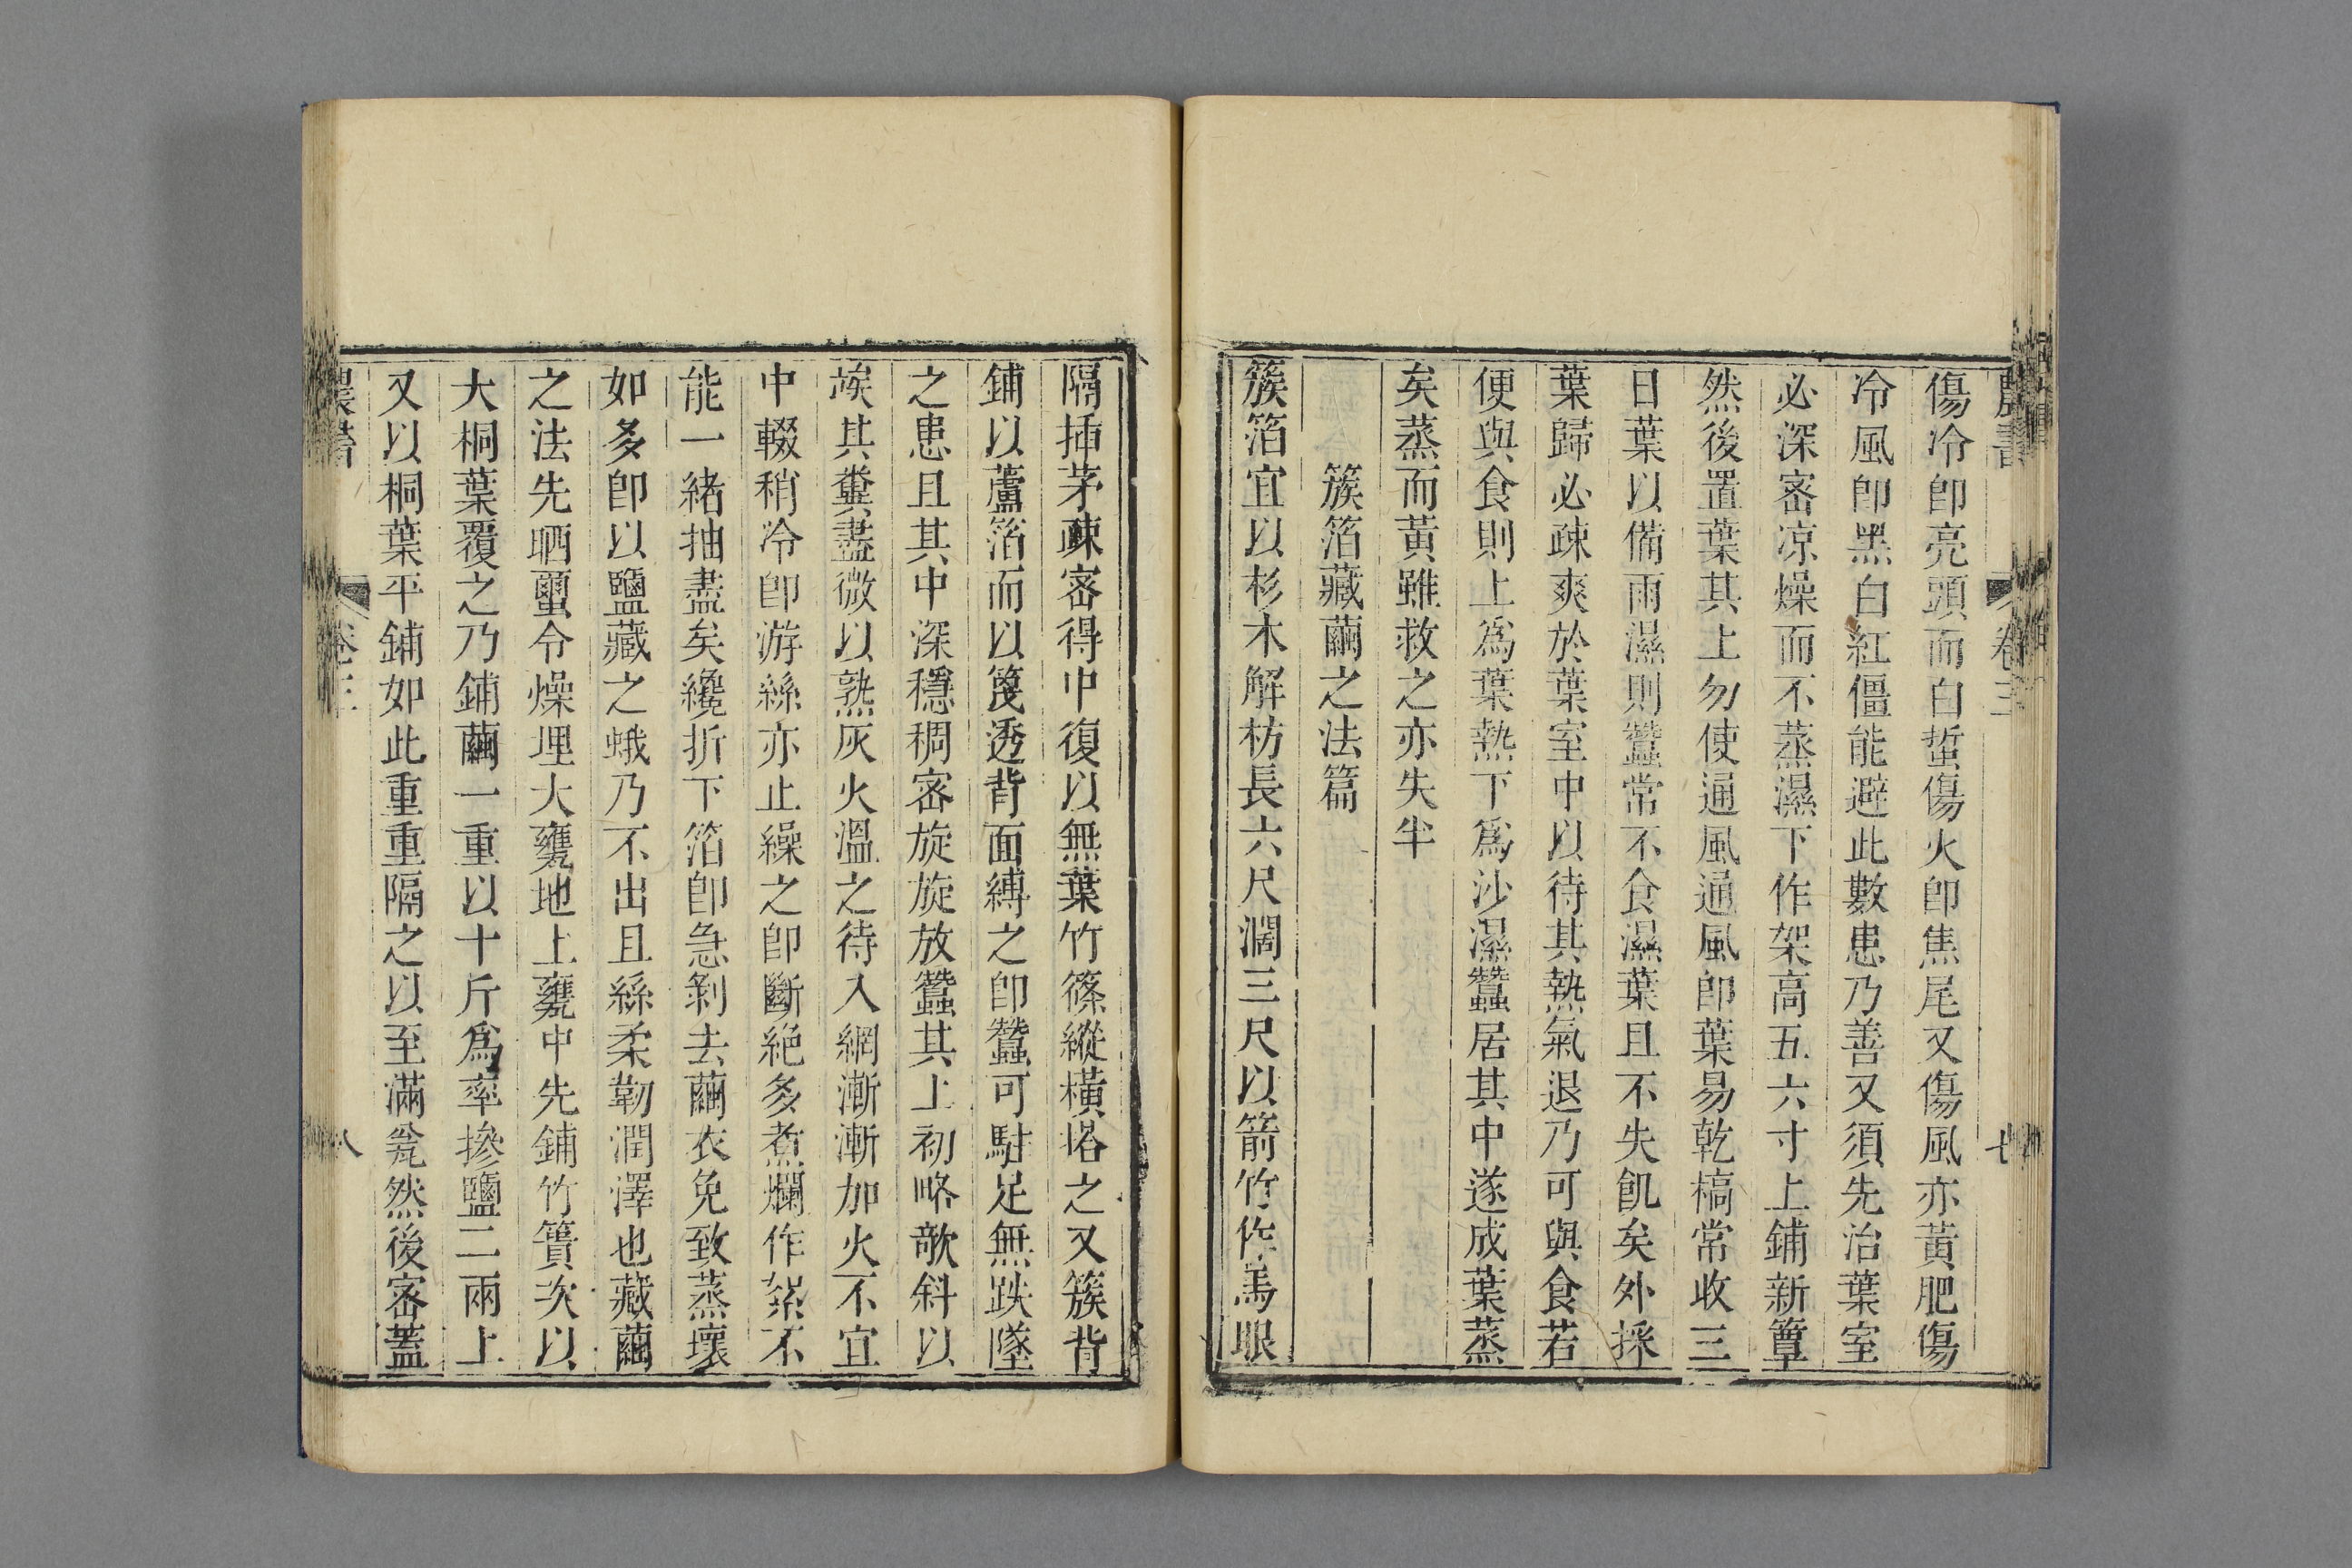 農書
卷三
七
傷冷卽亮頭而白蜇傷火卽焦尾又傷風亦黃肥傷
冷風卽黑白紅僵能避此數患乃善又須先治葉室
必深密凉燥而不蒸濕下作架高五六寸上鋪新簟
然後置葉其上勿使通風通風卽葉易乾槁常收三
日葉以備雨濕則蠶常不食濕葉且不失飢矣外採
葉歸必疎爽於葉室中以待其熱氣退乃可與食若
便與食則上爲葉熱下爲沙濕蠶居其中遂成葉蒸
矣蒸而黃雖救之亦失半
簇箔藏繭之法篇
簇箔宜以杉木解枋長六尺濶三尺以箭竹作馬眼
隔插茅疎密得中復以無葉竹篠縱橫搭之又簇背
鋪以蘆箔而以篾透背面縛之卽蠶可駐足無跌墜
之患且其中深穩稠密旋旋放蠶其上初略欹斜以
竢其糞盡微以熟灰火溫之待入網漸漸加火不宜
中輟稍冷卽游絲亦止繰之卽斷絕多煮爛作絮不
能一緒抽盡矣纔折下箔卽急剝去繭衣免致蒸壞
如多卽以鹽藏之蛾乃不出且絲柔韌潤澤也藏繭
之法先晒䌹令燥埋大甕地上甕中先鋪竹簀次以
大桐葉覆之乃鋪繭一重以十斤爲率摻鹽二兩上
又以桐葉平鋪如此重重隔之以至滿甕然後密蓋
農書
卷三
八